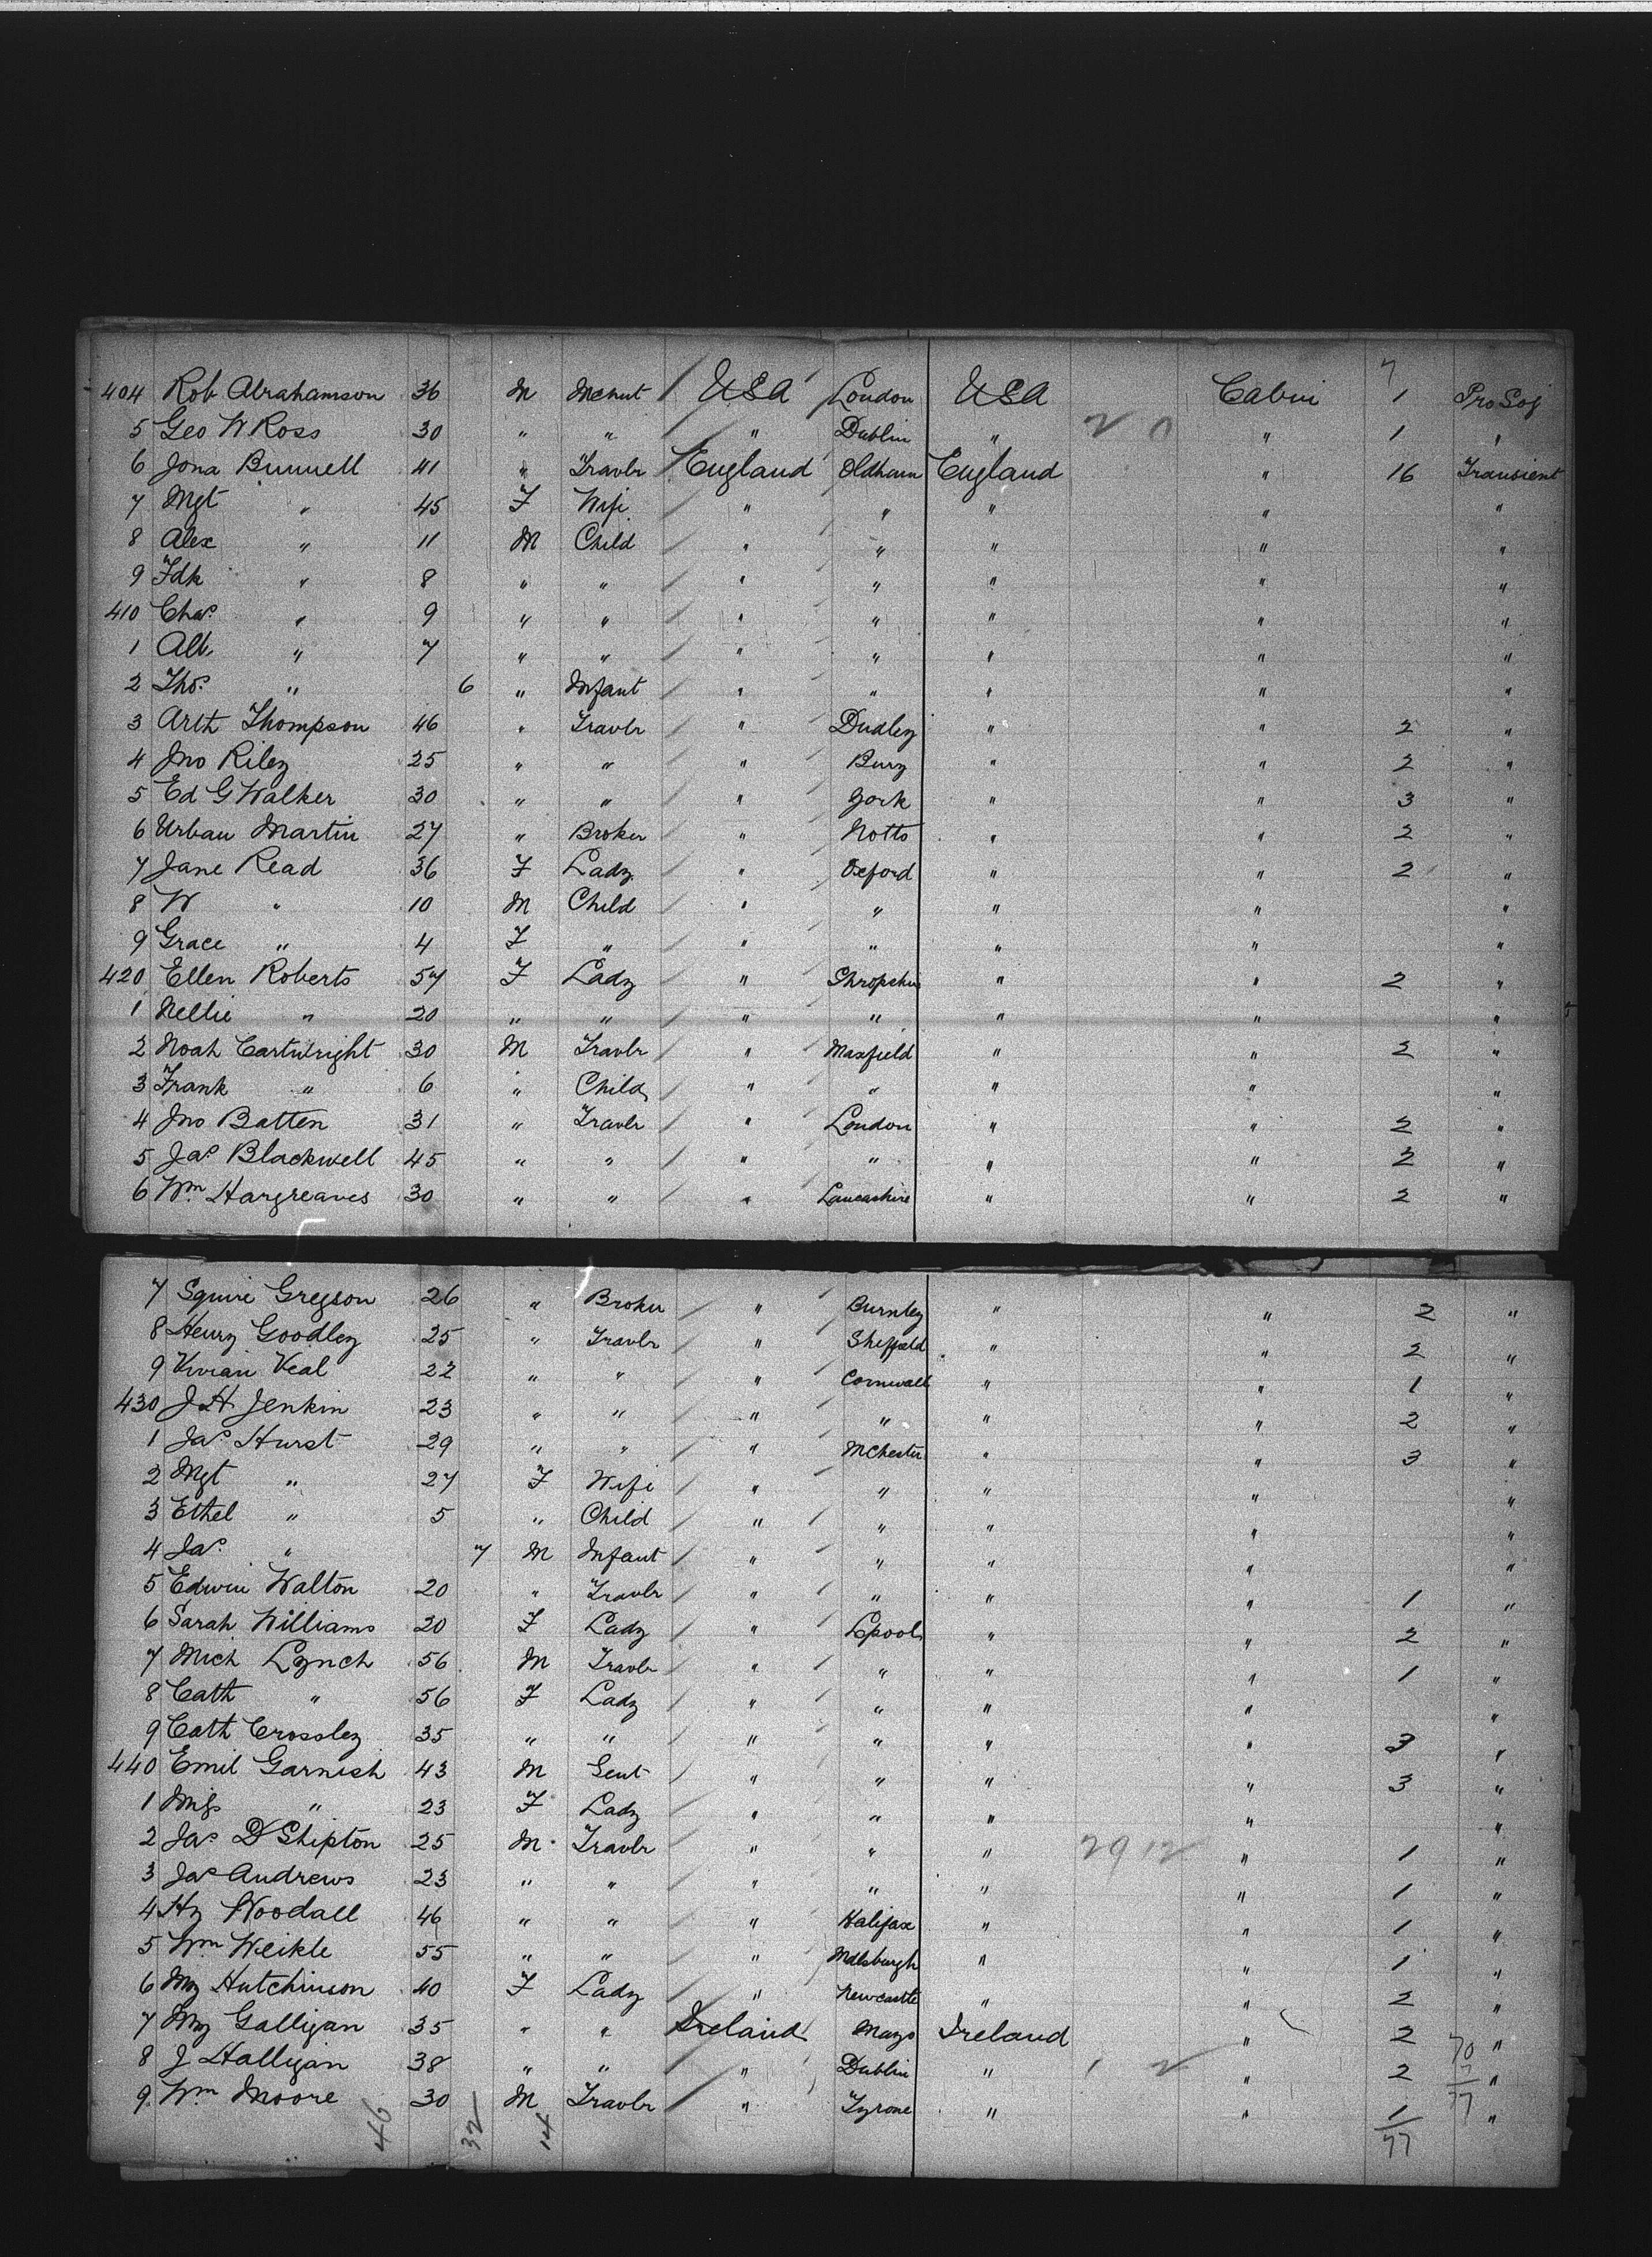 7
404 Rob Abrahamson 36 M Mchnt USA London USA Cabin 1 Pro Soj
5 Geo W Ross 30 " " " Dublin " 20 " 1 "
6 Jona Bunnell 41 " Travlr England Oldham England " 16 Transient
7 Mgt " 45 F Wife " " " " "
8 Alex " 11 M Child " " " " "
9 Fdk " 8 " " " " " " "
410 Chas " 9 " " " " " " "
1 Alb. " 7 " " " " " " "
2 Thos " 6 " Infant " " " " "
3 Arth Thompson 46 " Travlr " Dudley " " 2 "
4 Jno Riley 25 " " " Bury " " 2 "
5 Ed G Walker 30 " " " York " " 3 "
6 Urban Martin 27 " Broker " Notts " " 2 "
7 Jane Read 36 F Lady " Oxford " " 2 "
8 W " 10 M Child " " " " "
9 Grace " 4 F " " " " " "
420 Ellen Roberts 57 F Lady " Shropshire " " 2 "
1 Nellie " 20 " " " " " " "
2 Noah Cartwright 30 M Travlr " Maxfield " " 2 "
3 Frank " 6 " Child " " " " "
4 Jno Batten 31 " Travlr " London " " 2 "
5 Jas Blackwell 45 " " " " " " 2 "
6 Wm Hargreaves 30 " " " Lancashire " " 2 "
7 Squire Gregson 26 " Broker " Burnley " " 2 "
8 Henry Goodley 25 " Travlr " Sheffield " " 2 "
9 Vivian Veal 22 " " " Cornwall " " 1 "
430 J H Jenkin 23 " " " " " " 2 "
1 Jas Hurst 29 " " " MChester " " 3 "
2 Mgt " 27 F Wife " " " " "
3 Ethel " 5 " Child " " " " "
4 Jas " 7 M Infant " " " " "
5 Edwin Walton 20 " Travlr " " " " 1 "
6 Sarah Williams 20 F Lady " Lpool " " 2 "
7 Mich Lynch 56 M Travlr " " " " 1 "
8 Cath " 56 F Lady " " " " "
9 Cath Crossley 35 " " " " " " 3 "
440 Emil Garnish 43 M Gent " " " " 3 "
1 Mrs " 23 F Lady " " " " "
2 Jas D Shipton 25 M Travlr " " " 29 12 " 1 "
3 Jas Andrews 23 " " " " " " 1 "
4 Hy Woodall 46 " " " Halifax " " 1 "
5 Wm Weikle 55 " " " Mdlsburgh " " 1 "
6 My Hutchinson 40 F Lady " Newcastle " " 2 "
7 My Galligan 35 " " Ireland Mayo Ireland " 2 "
8 J Halligan 38 " " " Dublin " 1 2 " 2 "
9 Wm Moore 30 M Travlr " Tyrone " " 1 "
70
7
77
46 32 14 77